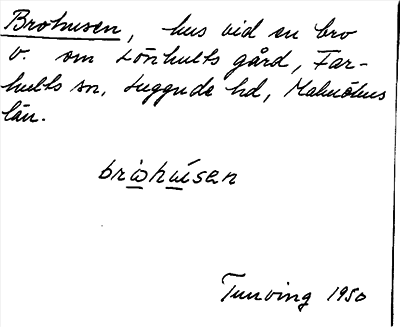 Brohusen, hus vid en bro
v. om Lönhults gård, Far-
hults sn, Luggude hd, Malmöhus
län.
bròhúsen
Tunving 1950